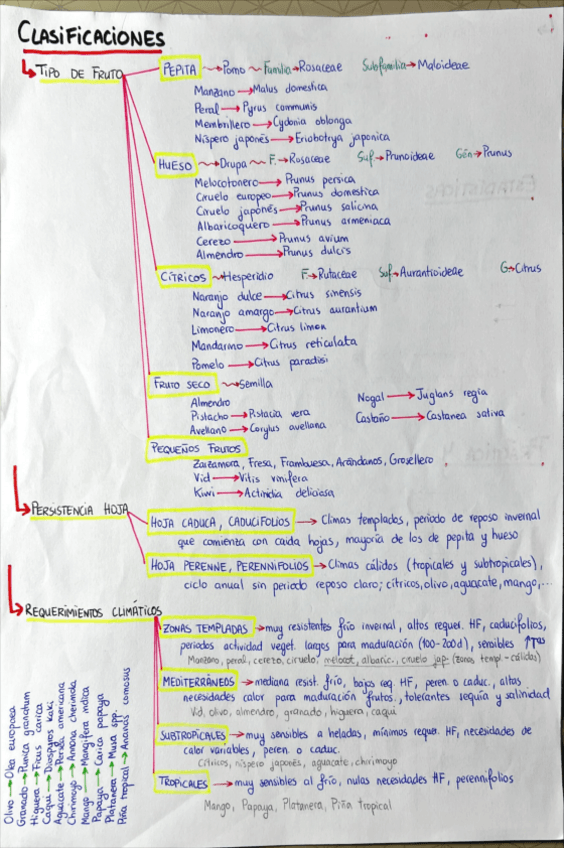 CLASIFICACIONES
TIPO DE FRUTO
PEPITA → Pomo ~ Familia → Rosaceae Subfamilia → Maloideae
Manzano → Malus domestica
Peral → Pyrus communis
Membrillero → Cydonia oblonga
Níspero japonés → Eriobotrya japonica
HUESO → Drupa ~ F. → Rosaceae Suf → Prunoideae Gén → Prunus
Melocotonero → Prunus persica
Ciruelo europeo → Prunus domestica
Ciruelo japonés → Prunus salicina
Albaricoquero → Prunus armeniaca
Cerezo → Prunus avium
Almendro → Prunus dulcis
CÍTRICOS → Hesperidio F. → Rutaceae Suf → Aurantioideae G → Citrus
Naranjo dulce → Citrus sinensis
Naranjo amargo → Citrus aurantium
Limonero → Citrus limon
Mandarino → Citrus reticulata
Pomelo → Citrus paradisi
FRUTO SECO → Semilla
Almendro Nogal → Juglans regia
Pistacho → Pistacia vera Castaño → Castanea sativa
Avellano → Corylus avellana
PEQUEÑOS FRUTOS
Zarzamora, Fresa, Frambuesa, Arándanos, Grosellero
Vid → Vitis vinifera
Kiwi → Actinidia deliciosa
PERSISTENCIA HOJA
HOJA CADUCA, CADUCIFOLIOS → Climas templados, periodo de reposo invernal
que comienza con caída hojas, mayoría de los de pepita y hueso
HOJA PERENNE, PERENNIFOLIOS → Climas cálidos (tropicales y subtropicales),
ciclo anual sin periodo reposo claro; cítricos, olivo, aguacate, mango,...
REQUERIMIENTOS CLIMÁTICOS
ZONAS TEMPLADAS → muy resistentes frío invernal, altos requer. HF, caducifolios,
periodos actividad veget. largos para maduración (100-200d), sensibles ↑Tas
Manzano, peral, cerezo, ciruelo, melocot, albaric, ciruelo jap. (zonas templ.-cálidas)
MEDITERRÁNEOS → mediana resist. frío, bajos req. HF, peren. o caduc., altas
necesidades calor para maduración frutos, tolerantes sequía y salinidad
Vid, olivo, almendro, granado, higuera, caqui
SUBTROPICALES → muy sensibles a heladas, mínimos reque. HF, necesidades
de calor variables, peren. o caduc.
Cítricos, níspero japonés, aguacate, chirimoyo
TROPICALES → muy sensibles al frío, nulas necesidades HF, perennifolios
Mango, Papaya, Platanera, Piña tropical
Olivo → Olea europaea
Granado → Punica granatum
Higuera → Ficus carica
Caqui → Diospyros kaki
Aguacate → Persea americana
Chirimoyo → Annona cherimola
Mango → Mangifera indica
Papaya → Carica papaya
Platanera → Musa spp.
Piña tropical → Ananas comosus